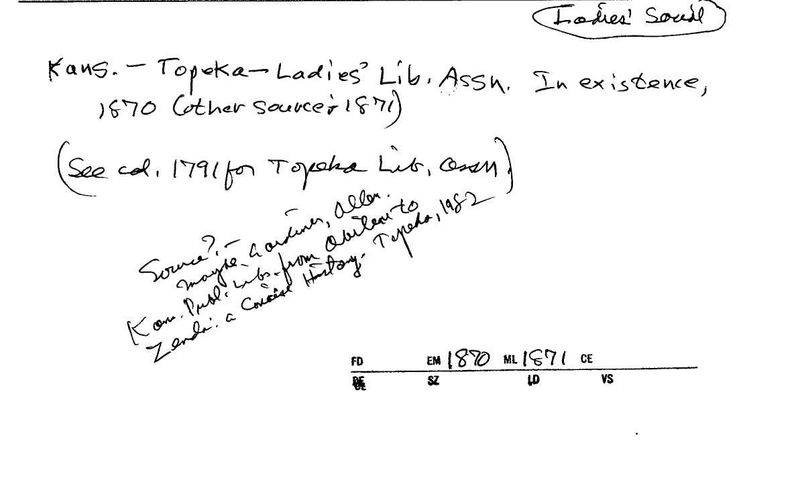 Ladies' Social
Kans. – Topeka – Ladies' Lib. Assn. In existence,
1870 (other source: 1871)
(See cd. 1791 for Topeka Lib. Assn.)
Source? –
maybe Gardiner, Allen.
Kan. Publ. Libs. from Abilene to
Zenda: a Concise History. Topeka, 1982
FD EM 1870 ML 1871 CE
SZ LD VS